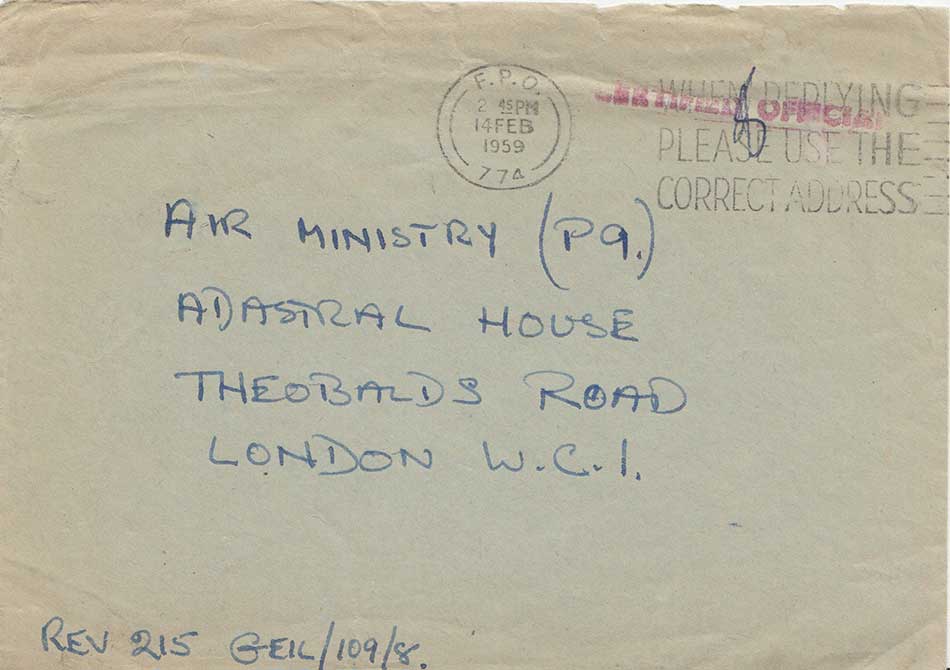 F.P.O.
2 45PM
14 FEB
1959
774
CERTIFIED OFFICIAL
WHEN REPLYING
PLEASE USE THE
CORRECT ADDRESS
AIR MINISTRY (P9.)
ADASTRAL HOUSE
THEOBALDS ROAD
LONDON W.C.1.
REV 215 GEIL/109/8.